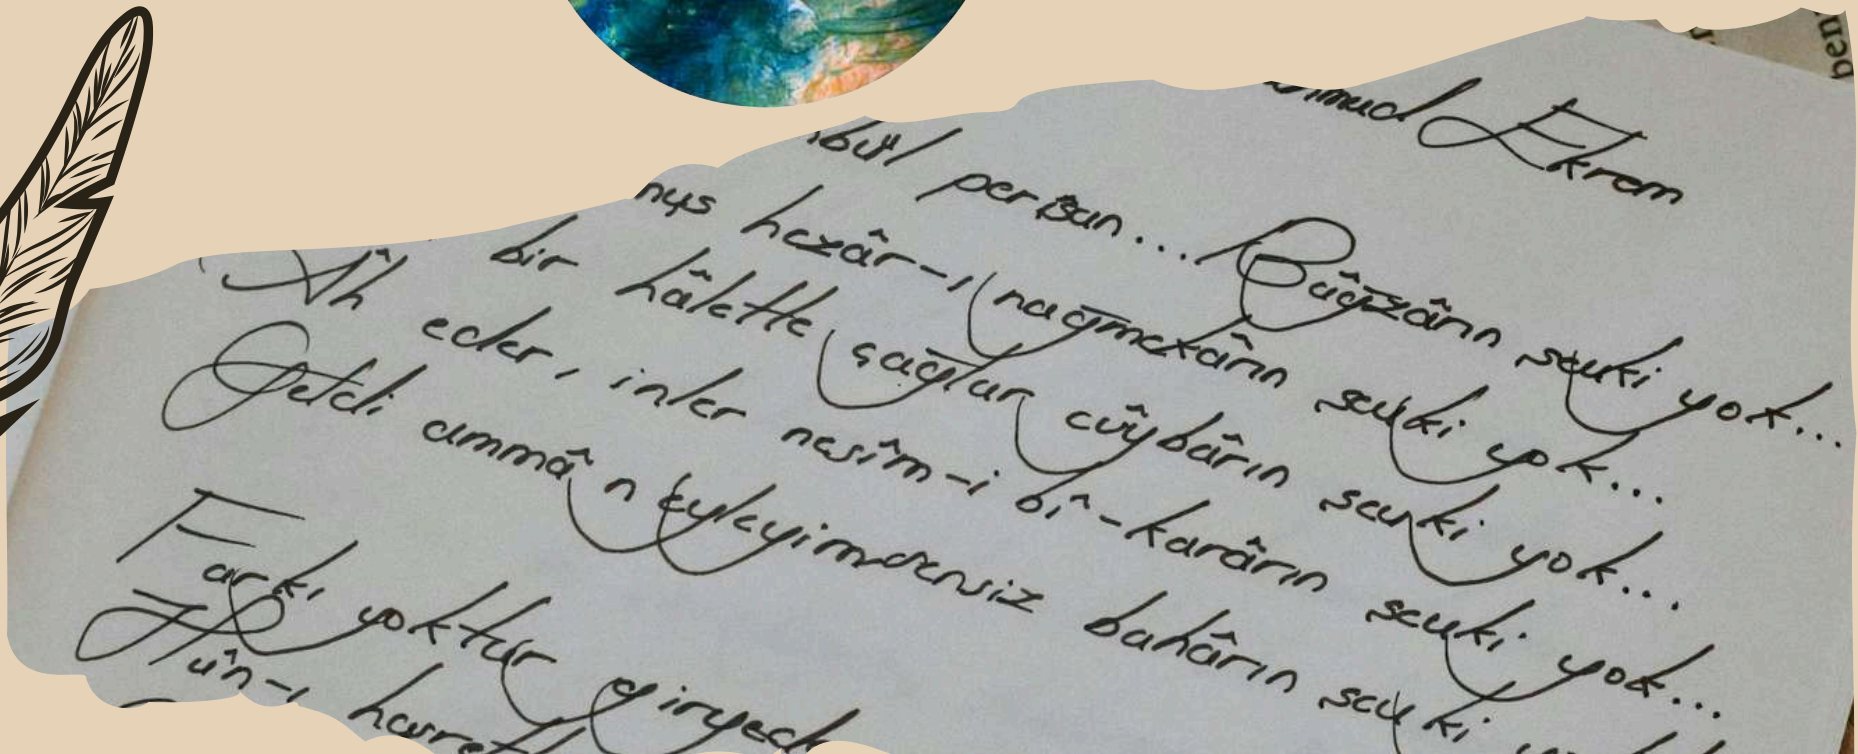 Ekrem
perîşan... Bâğzârın şevki yok...
hezâr-ı nağmekârın şevki yok...
bir hâletle çağlar cûybârın şevki yok...
Âh eder, inler nesîm-i bî-karârın şevki yok...
Geldi ammâ n'eyleyim sensiz bahârın şevki
Farkı yoktur
Hûn-ı